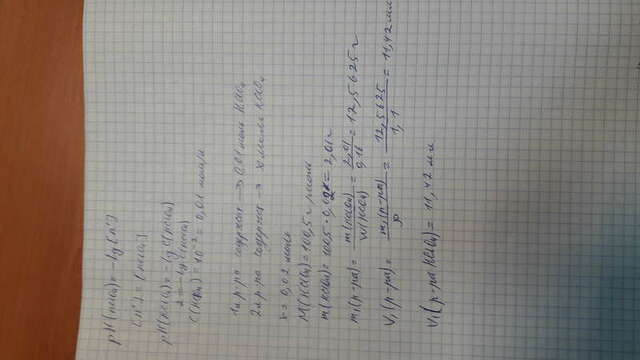 pH(HClO₄) = -lg[H⁺]
[H⁺] = [HClO₄]
pH(HClO₄) = -lg C(HClO₄)
2 = -lg C(HClO₄)
C(HClO₄) = 10⁻² = 0,01 моль/л
1л р-ра содержит → 0,01 моль HClO₄
2л р-ра содержит → x моль HClO₄
x = 0,02 моль
M(HClO₄) = 100,5 г/моль
m(HClO₄) = 100,5 · 0,02 = 2,01г
m₁(р-ра) = m(HClO₄)/W(HClO₄) = 2,01/0,16 = 12,5625 г
V₁(р-ра) = m₁(р-ра)/ρ = 12,5625/1,1 = 11,42 мл
V₁(р-ра HClO₄) = 11,42 мл